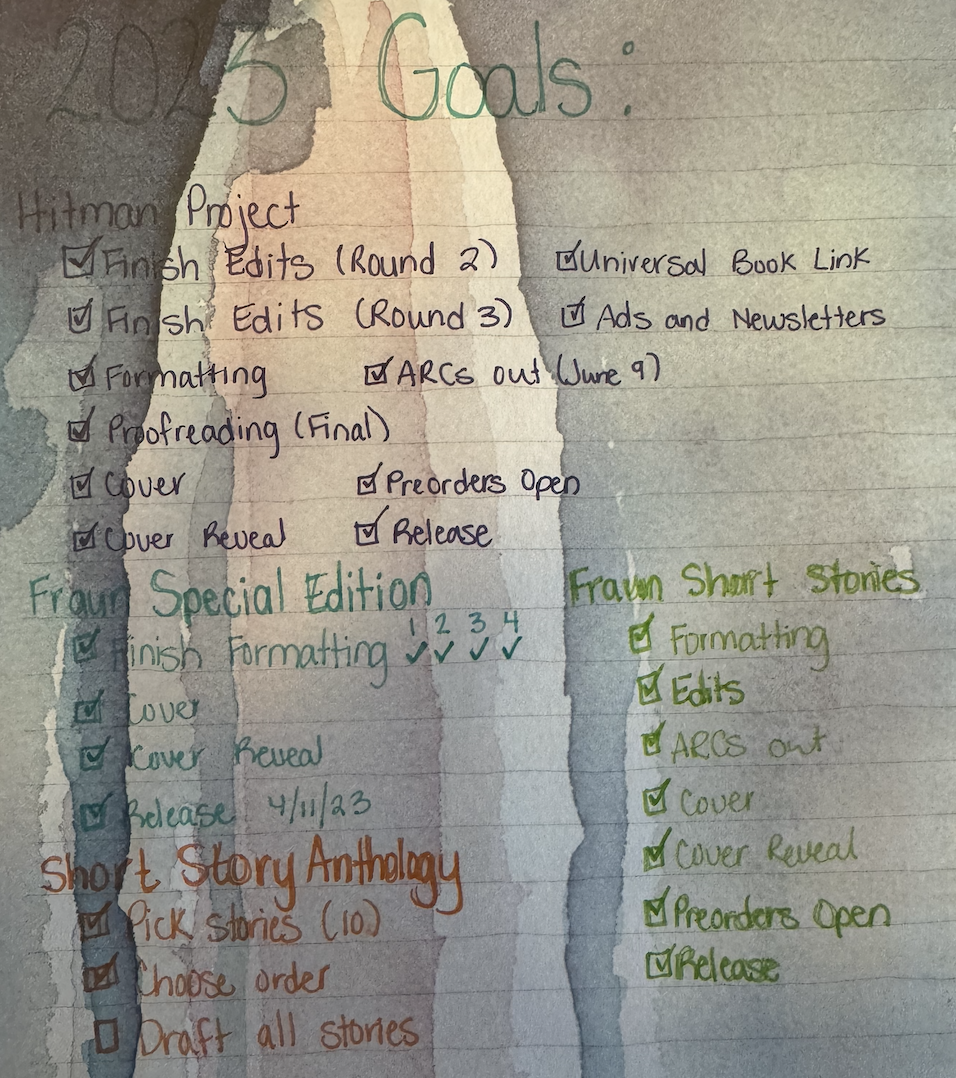 2023 Goals:
Hitman Project
☑ Finish Edits (Round 2) ☑ Universal Book Link
☑ Finish Edits (Round 3) ☑ Ads and Newsletters
☑ Formatting ☑ ARCs out (June 9)
☑ Proofreading (Final)
☑ Cover ☑ Preorders Open
☑ Cover Reveal ☑ Release
Fraun Special Edition
☑ Finish Formatting 1✓ 2✓ 3✓ 4✓
☑ Cover
☑ Cover Reveal
☑ Release 4/11/23
Fraun Short Stories
☑ Formatting
☑ Edits
☑ ARCs out
☑ Cover
☑ Cover Reveal
☑ Preorders Open
☑ Release
Short Story Anthology
☑ Pick stories (10)
☑ Choose order
☐ Draft all stories